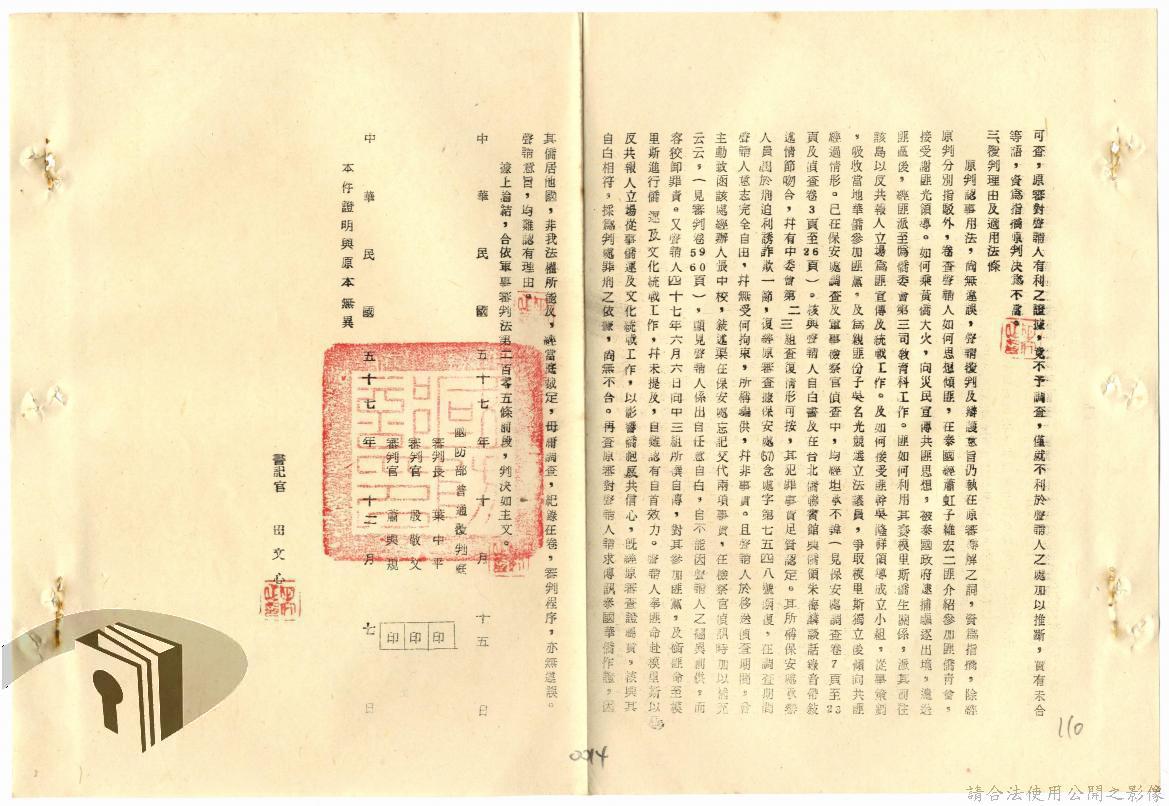 可查，原審對聲請人有利之證據，竟不予調查，僅就不利於聲請人之處加以推斷，實有未合
等語，資為指摘原判決為不當。
三、覆判理由及適用法條
原判認事用法，尚無違誤，聲請覆判及辯護意旨仍執在原審辯解之詞，資為指摘，除經
原判分別指駁外，卷查聲請人如何思想傾匪，在泰國經蕭虹子雍宏二匪介紹參加匪僑青會，
接受謝匪光領導。如何乘黃橋大火，向災民宣傳共匪思想，被泰國政府逮捕驅逐出境，遣送
匪區後，經匪派至偽僑委會第三司教育科工作。匪如何利用其與模里斯僑生關係，派其前往
該島以反共報人立場為匪宣傳及統戰工作。及如何接受匪幹吳隆祥領導成立小組，從事策劃
，吸收當地華僑參加匪黨，及為親匪份子吳名光競選立法議員，爭取模里斯獨立後傾向共匪
經過情形。已在保安處調查及軍事檢察官偵查中，均經坦承不諱（見保安處調查卷7頁至23
頁及偵查卷3頁至26頁）。核與聲請人自白書及在台北僑聯賓館與僑領朱海談話錄音帶敘
述情節吻合，幷有中委會第二三組查復情形可按，其犯罪事實足資認定。其所稱保安處承辦
人員囿於刑迫利誘詐欺一節，復經原審查據保安處(57)念處字第七五四八號函復，在調查期間
聲請人意志完全自由，幷無受何拘束，所稱騙供，幷非事實。且聲請人於移送偵查期間，曾
主動致函該處經辦人張中校，敍述渠在保安處忘記交代兩項事實，在檢察官偵訊時加以補充
云云，（見審判卷5690頁），顯見聲請人係出自任意自白，自不能因聲請人之翻異前供，而
容狡卸罪責。又聲請人四十七年六月六日向中三組所撰自傳，對其參加匪黨，及銜匪命至模
里斯進行僑運及文化統戰工作，幷未提及，自難認有自首效力。聲請人奉匪命赴模里斯以
反共報人立場從事僑運及文化統戰工作，以影響僑胞反共信心，既經原審查證屬實，核與其
自白相符，採為判處罪刑之依據，尚無不合。再查原審對聲請人請求傳訊泰國華僑作證，因
其僑居他國，非我法權所能及，經當庭裁定，毋庸調查，紀錄在卷，審判程序，亦無違誤。
聲請意旨，均難認有理由。
據上論結，合依軍事審判法第二百零五條前段，判決如主文。
中華民國五十七年十月十五日
國防部普通覆判庭
審判長 葉中平 印
審判官 殷敬父 印
審判官 蕭與規 印
中華民國五十七年十二月七日
本件證明與原本無異
書記官 田文心
110
0014
請合法使用公開之影像